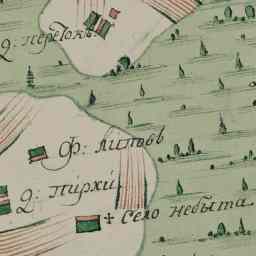 Д: перетокъ
Ф: липовъ
Д: пирхи
село небыта